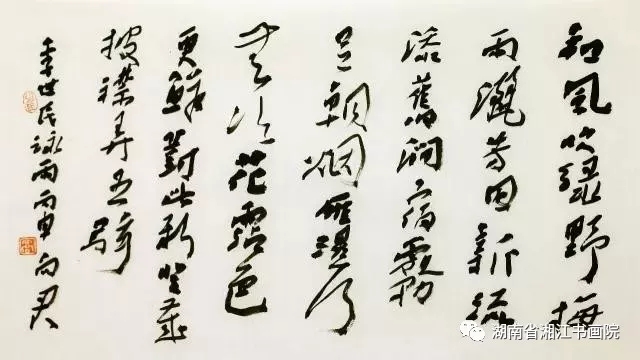 和風吹緑野梅
雨灑芳田新流
添舊澗宿霧
足朝烟雁濕行
无次花霑色
更鮮對此欣登歲
披襟弄五弦
李世民詠雨丙申向君
湖南省湘江书画院